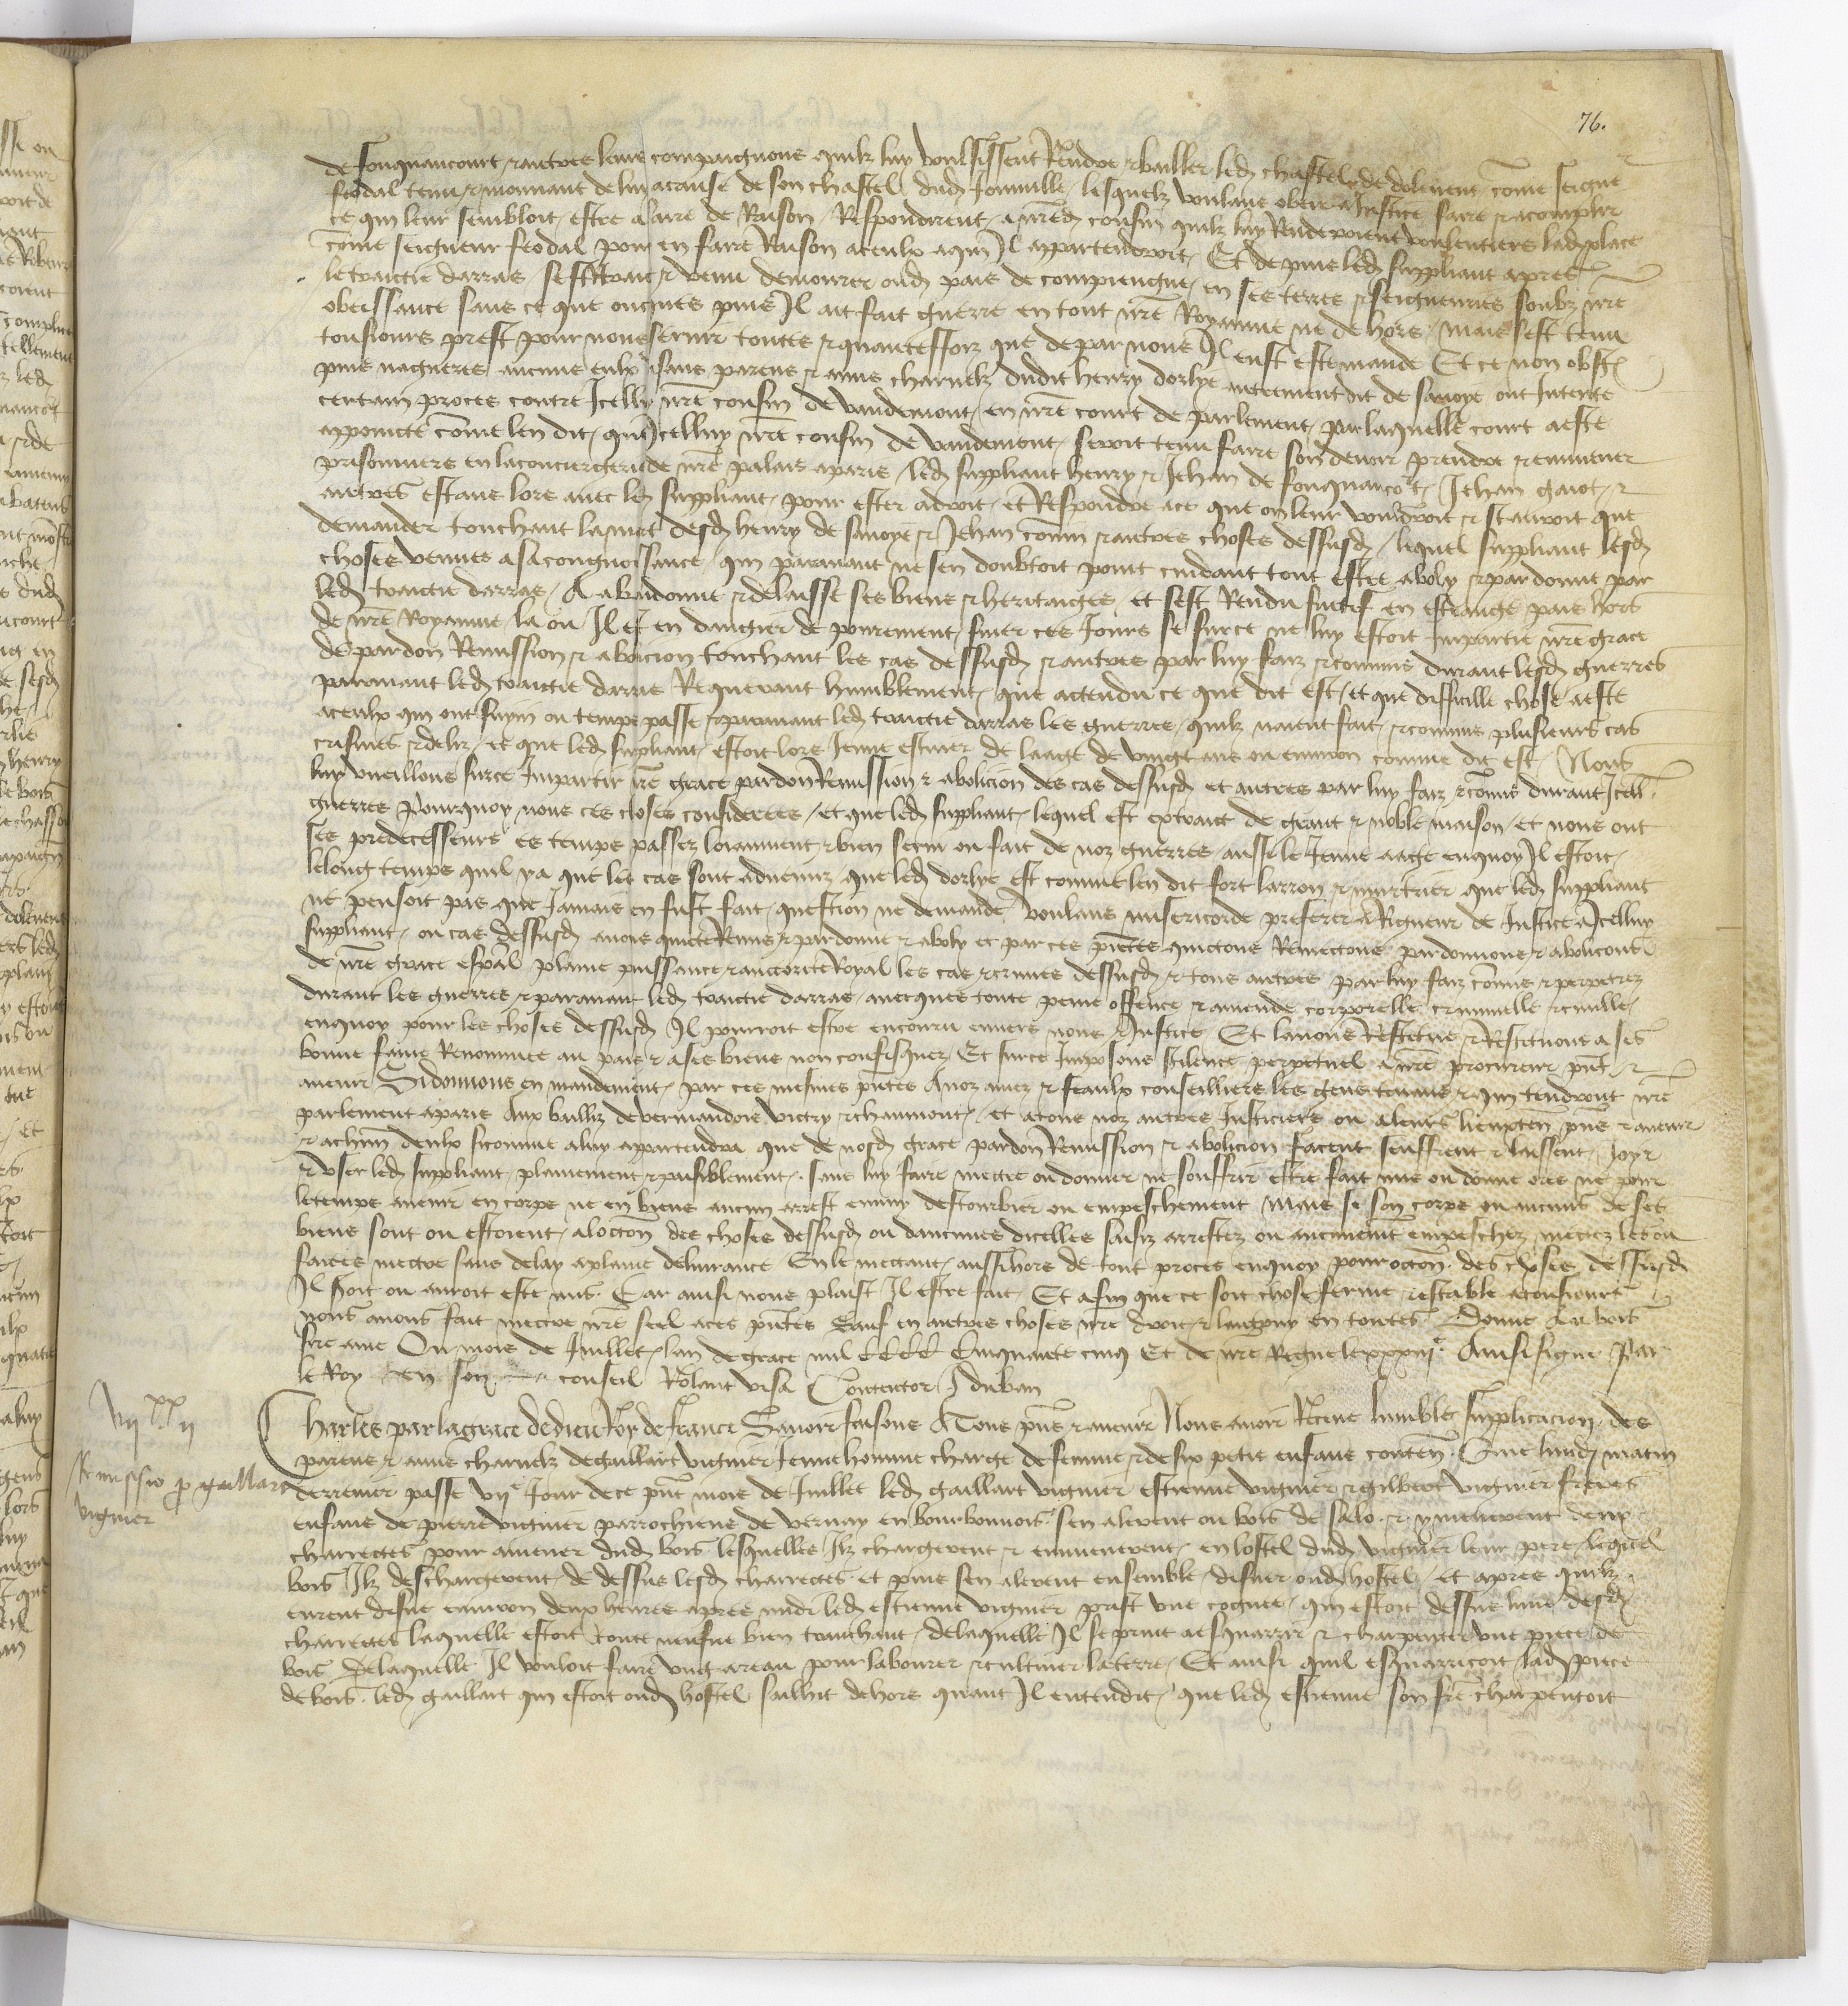 76.
de fouquancourt et autres leurs compaignons quilz luy voulsissent Rendre et bailler led chastel de dolevent come seigne
feodal tenu et mouvant de luy a cause de son chastel dud Jouville lesquelz voulans obeir a Justice faire et acomplir
ce qui leur sembloit estre a faire de Raison Respondirent a nred cousin quilz luy Rendroient voulentiers lad place
come seigneur feodal pour en faire Raison a ceulx a qui Il appartendroit Et depuis led suppliant apres
le traictie darras sest Retrait et venu demourer oud pais de compiengne en ses terres et seigneuries soubz nre
obeissance sans ce que oncques puis Il ait fait guerre en tout nre Royaume ne dehors mais sest tenu
tousiours prest pour nous servir toutes et quanteffoiz que de par nous Il eust este mande Et ce non obst
puis nagueres aucuns eulx disans parens et amis charnelz dudit henry dorlye autrement dit de savoye ont Intente
certain proces contre Icelluy nre cousin de vaudemont en nre court de parlement par laquelle court a este
appoincte come len dit que Icelluy nre cousin de vaudemont seroit tenu faire son devoir prendre et emmener
prisonniers en la conciergerie de nre palais a paris led suppliant henry et Jehan de fouquanco't Jehan gaiot et
autres estans lors avec led suppliant pour ester a droit et Respondre a ce que on leur vouldroit et sauroit que
demander touchant la mort desd henry de savoye et Jehan comn et autres choses dessusd lequel suppliant lesd
choses venues a sa congnoissance qui paravant ne sen doubtoit point cuidant tout estre aboly et pardonne par
led traictie darras A abandonne et delaisse ses biens et heritaiges et sest Rendu fuitif en estrange pais hors
de nre Royaume la ou Il est en dangier de povrement finer ses Jours se sur ce ne luy estoit Impartie nre grace
de pardon Remission et abolicion touchant les cas dessusd et autres par luy faiz et commis durant lesd guerres
paravant led traictie darras Requerant humblement que actendu ce que dit est et que difficille chose a este
a ceulx qui ont suyui ou temps passe et paravant led traictie darras les guerres quilz naient fait et commis plusieurs cas
crismes et deliz et que led suppliant estoit lors Jeune escuier de laage de vingt ans ou environ comme dit est Nous
luy vueillons sur ce Impartir nre grace pardon Remission et abolicion des cas dessusd et autres par luy faiz et commis durant Icell
guerres Pourquoy nous ces choses considerees et que led suppliant lequel est extraict de grant et noble maison et nous ont
ses predecesseurs es temps passez loyaument et bien servi ou fait de noz guerres aussi le Jeune aage enquoy Il estoit
le long temps quil ya que les cas sont advenuz que led dorlye est comme len dit fort larron et murtrier que led suppliant
ne pensoit pas que Jamais en fust fait question ne demande voulans misericorde preferer a Rigueur de Justice a Icelluy
suppliant ou cas dessusd avons quicte Remis et pardonne et aboly et par ces pntes quictons Remectons pardonnons et abolicons
de nre grace espal plaine puissance et auctorite Royal les cas et crimes dessusd et tous autres par luy faiz comis et perpetrez
durant les guerres et paravant led traictie darras avecques toute peine offence et amende corporelle criminelle et civille
enquoy pour les choses dessusd Il pourroit estre encouru envers nous et Justice Et lavons Restitue et Restituons a ses
bonne fame Renommee au pais et a ses biens non confisquez Et sur ce Imposons silence perpetuel a nre procureur pnt et
avenir Si donnons en mandement par ces mesmes pntes A noz amez et feaulx conseilliers les gens tenans et qui tendront nre
parlement a paris Aux bailliz de vermandois victry et chaumont et a tous noz autres Justiciers ou a leurs lieuxten pns et avenir
et a chun deulx si comme a luy appartendra que de nosd grace pardon Remission et abolicion facent seuffrent et laissent Joyr
et user led suppliant plainement et paisiblement sans luy faire mectre ou donner ne souffrir estre fait mis ou donne ores ne pour
le temps avenir en corps ne en biens aucun arrest ennuy destourbier ou empeschement mais se son corps ou aucuns de ses
biens sont ou estoient a loccon des choses dessusd ou daucunes dicelles saisiz arrestez ou aucunement empeschez mectez les ou
faictes mectre sans delay a plaine delivrance En le mectant aussi hors de tout proces enquoy pour occon des choses dessusd
Il soit ou auroit este mis Car ainsi nous plaist Il estre fait Et afin que ce soit chose ferme et estable a tousiours
nous avons fait mectre nre seel a ces pntes Sauf en autres choses nre droit et lautruy en toutes Donne Au bois
sire ame Ou mois de Juillet lan de grace mil CCCC Cinquante cinq Et de nre Regne le xxxiije Ainsi signe Par
le Roy en son conseil Rolant visa Contentor J duban
vijxx ij
Remissio p gaillart
vigmer
Charles par la grace de dieu Roy de france Savoir faisons A Tous pns et avenir Nous avoir Receue lumble supplicacion des
parens et amis charnelz de gaillart vigmer Jeune homme charge de femme et de six petis enfans conten Que lundi matin
derrenier passe vije Jour de ce pnt mois de Juillet led gaillart vigmer estienne vigmer et gilbert vigmer freres
enfans de pierre vigmer parrochiens de vernay en bourbonnois sen alerent ou bois de salo et y menerent deux
charrectes pour amener dud bois lesquelles Ilz chargerent et emmenerent en lostel dud vigmer leur pere lequel
bois Ilz deschargerent de dessus lesd charrectes et puis sen alerent ensemble disner oud hostel et apres quilz
eurent disne environ deux heures apres midi led estienne vigmer prist une cognee qui estoit dessus lune desd
charrectes laquelle estoit toute neufve bien trenchant de laquelle Il se print a esquarrir et charpenter une piece de
bois De laquelle Il vouloit faire ung areau pour labourer et cultiver la terre Et ainsi quil esquarrissoit lad piece
de bois led gaillart qui estoit oud hostel saillit dehors quant Il entendit que led estienne son fre charpentoit